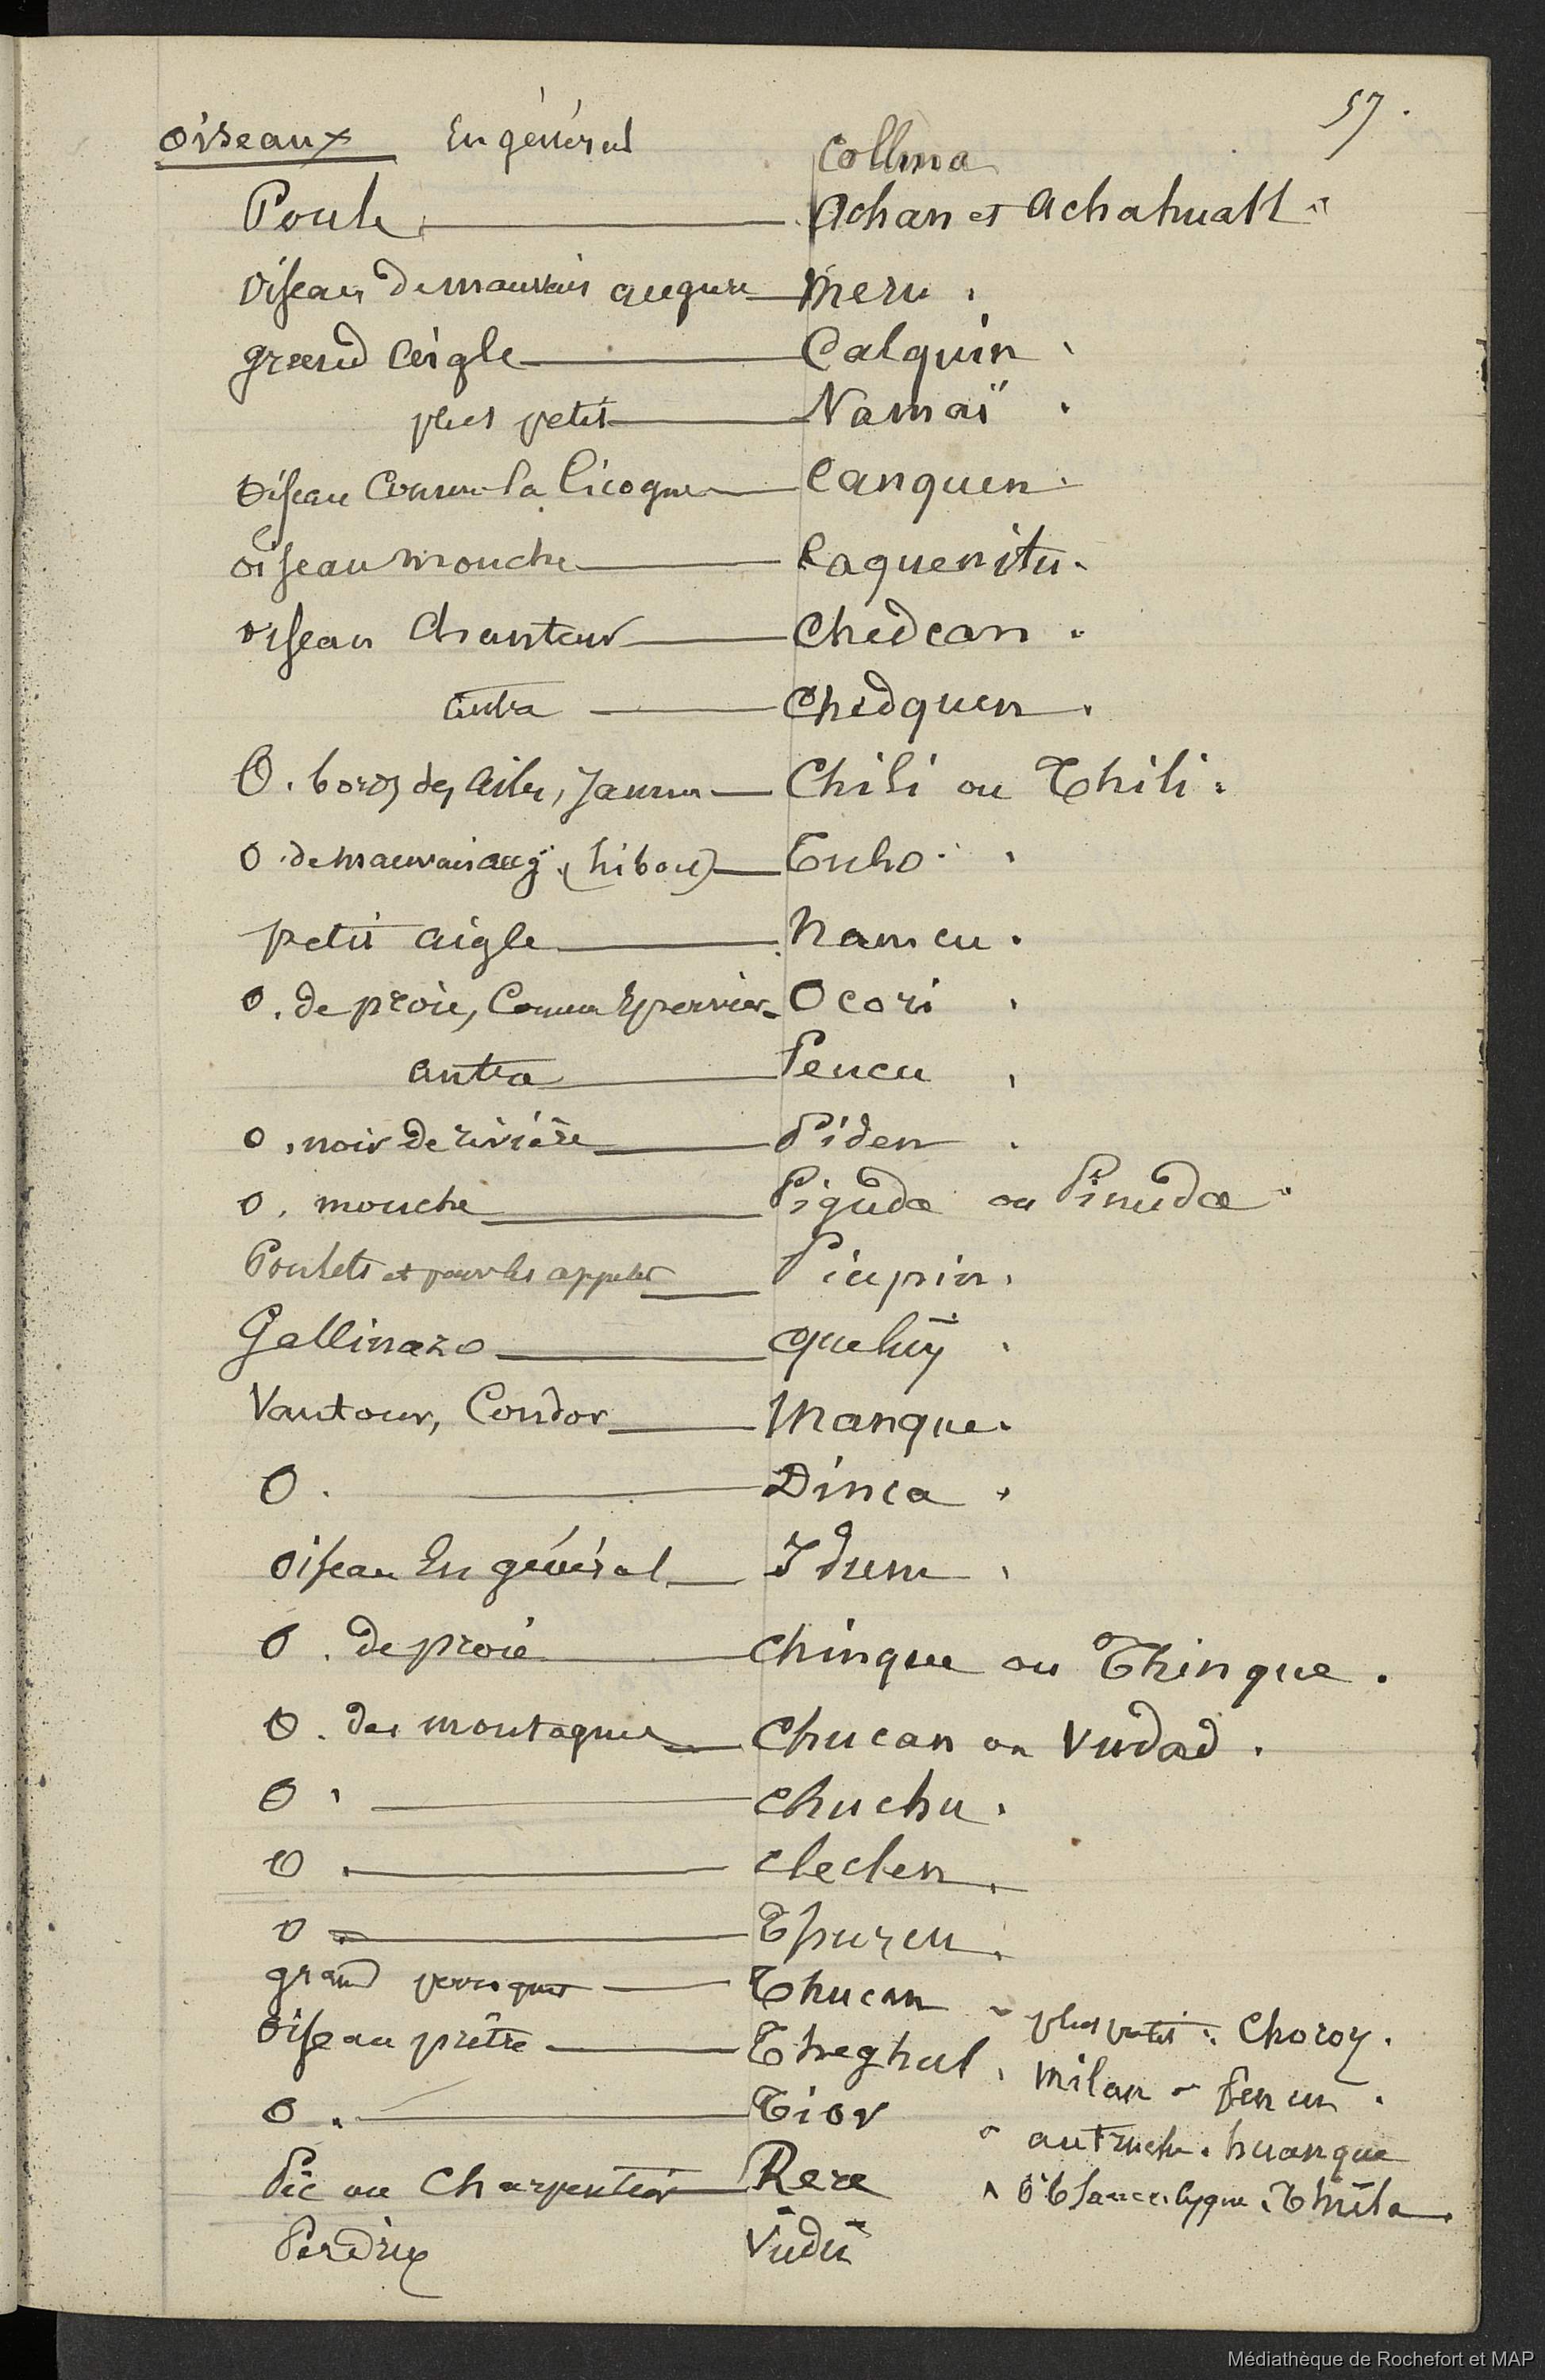 57.
oiseaux En général Collma
Poule Achan et Achahuall
oiseau de mauvais augure Meru.
grand aigle Calquin
plus petit Namaï
oiseau comme la Cicogne Canquen.
oiseau mouche Caquenitu.
oiseau Chanteur Chedcan.
autre Chedquen.
O. bords des ailes, jaunes Chili ou Thili.
O. de mauvais aug. (hibou) Tuho
petit aigle Namcu.
O. de proie, comme Epervier Ocori
autre Peucu
O. noir de rivière Piden
O. mouche Piguda ou Pinuda
Poulets et pour les appeler Piupiu.
Gallinazo quelüy
Vautour, Condor Manque.
O. Dinca
oiseau En général Idum
O. de proie Chinque ou Thinque.
O. des montagnes Chucan ou Vudad.
O. Chuchu.
O. Cleclen.
O.
grand perroquet Thucan plus petit. Choroy.
oiseau prêtre Threghul. Milan
O. Tior autruche. huanque
Pic ou Charpentier Rere
Perdrix Vudü
Médiathèque de Rochefort et MAP